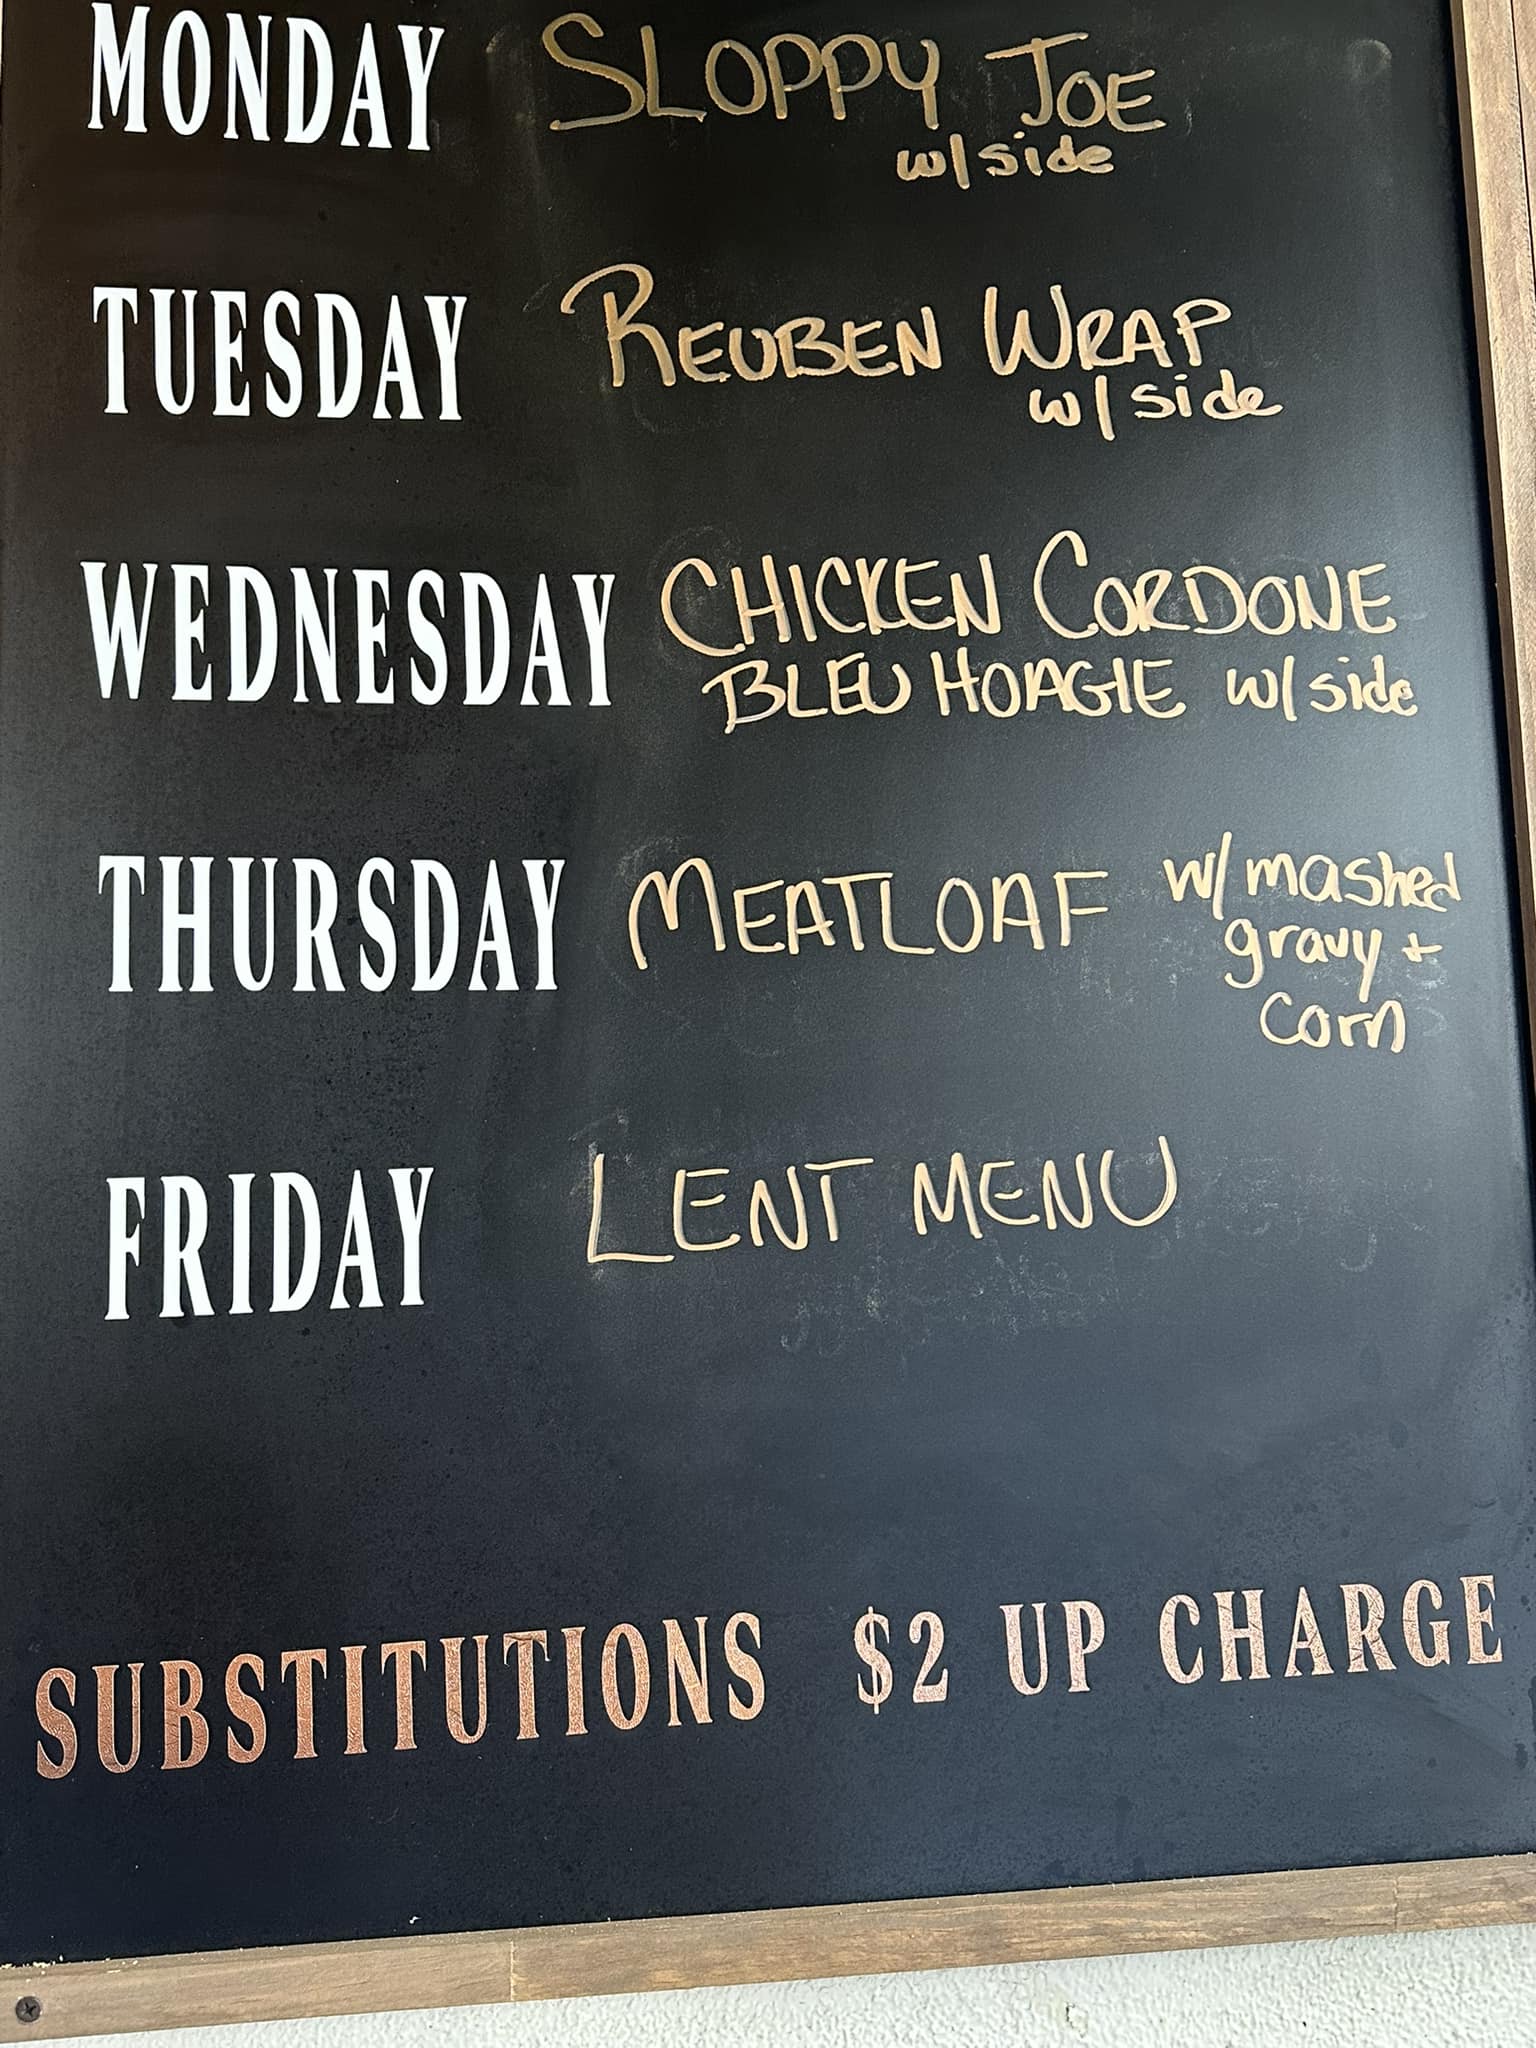 MONDAY SLOPPY JOE
w/ side
TUESDAY REUBEN WRAP
w/ side
WEDNESDAY CHICKEN CORDONE
BLEU HOAGIE w/ side
THURSDAY MEATLOAF w/ mashed
gravy +
corn
FRIDAY LENT MENU
SUBSTITUTIONS $2 UP CHARGE